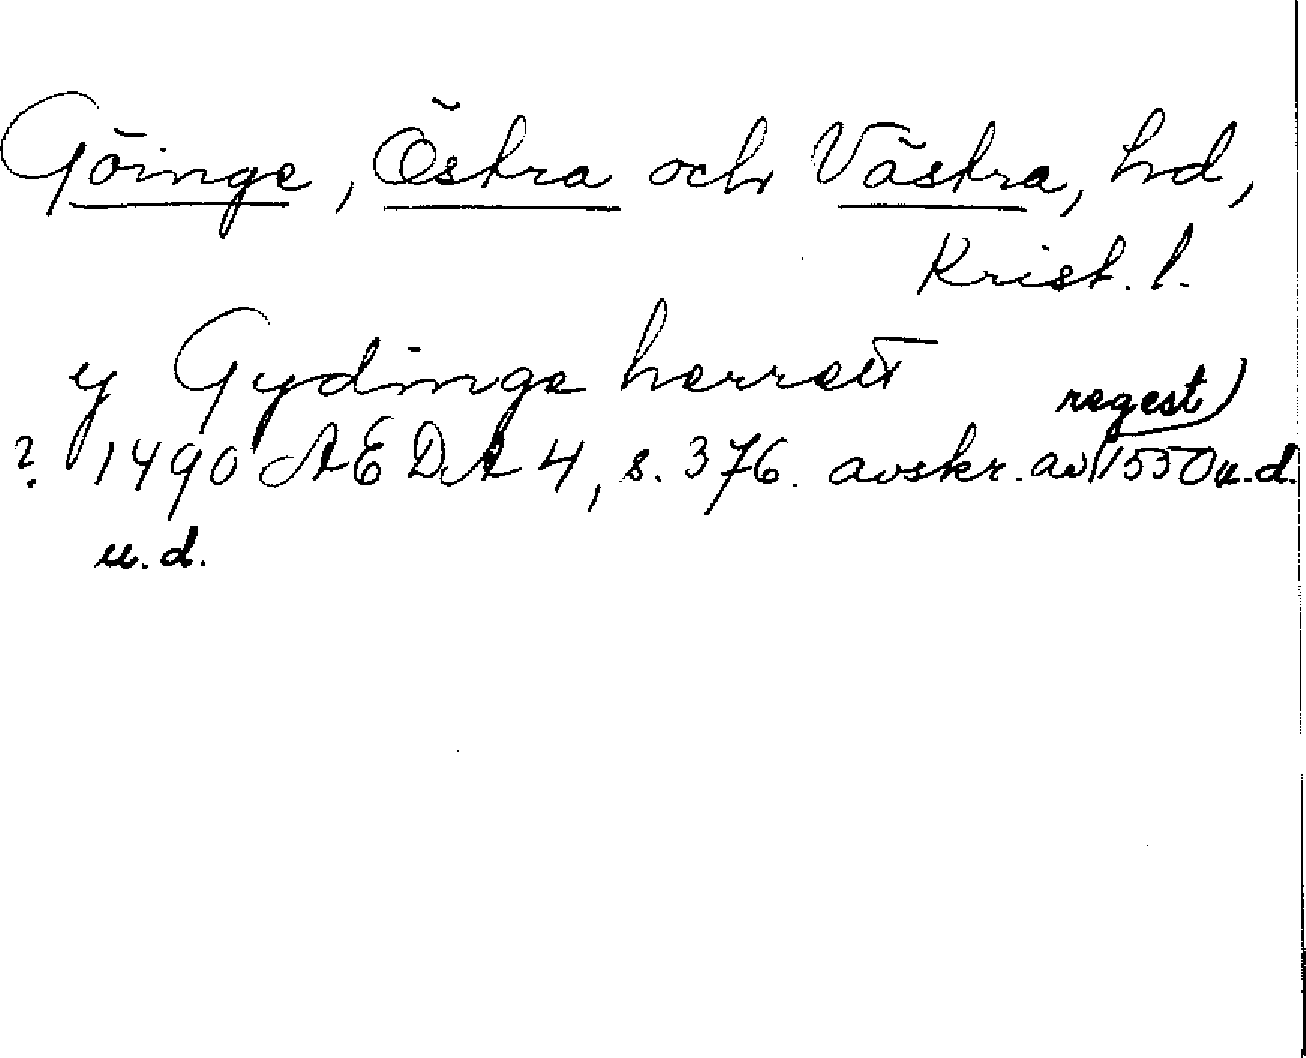 Göinge, Östra och Västra, hd,
Krist. l.
y Gydinge herrett
regest)
? 1490 ÆDA 4, s. 376. avskr. av 1550 u.d.
u.d.